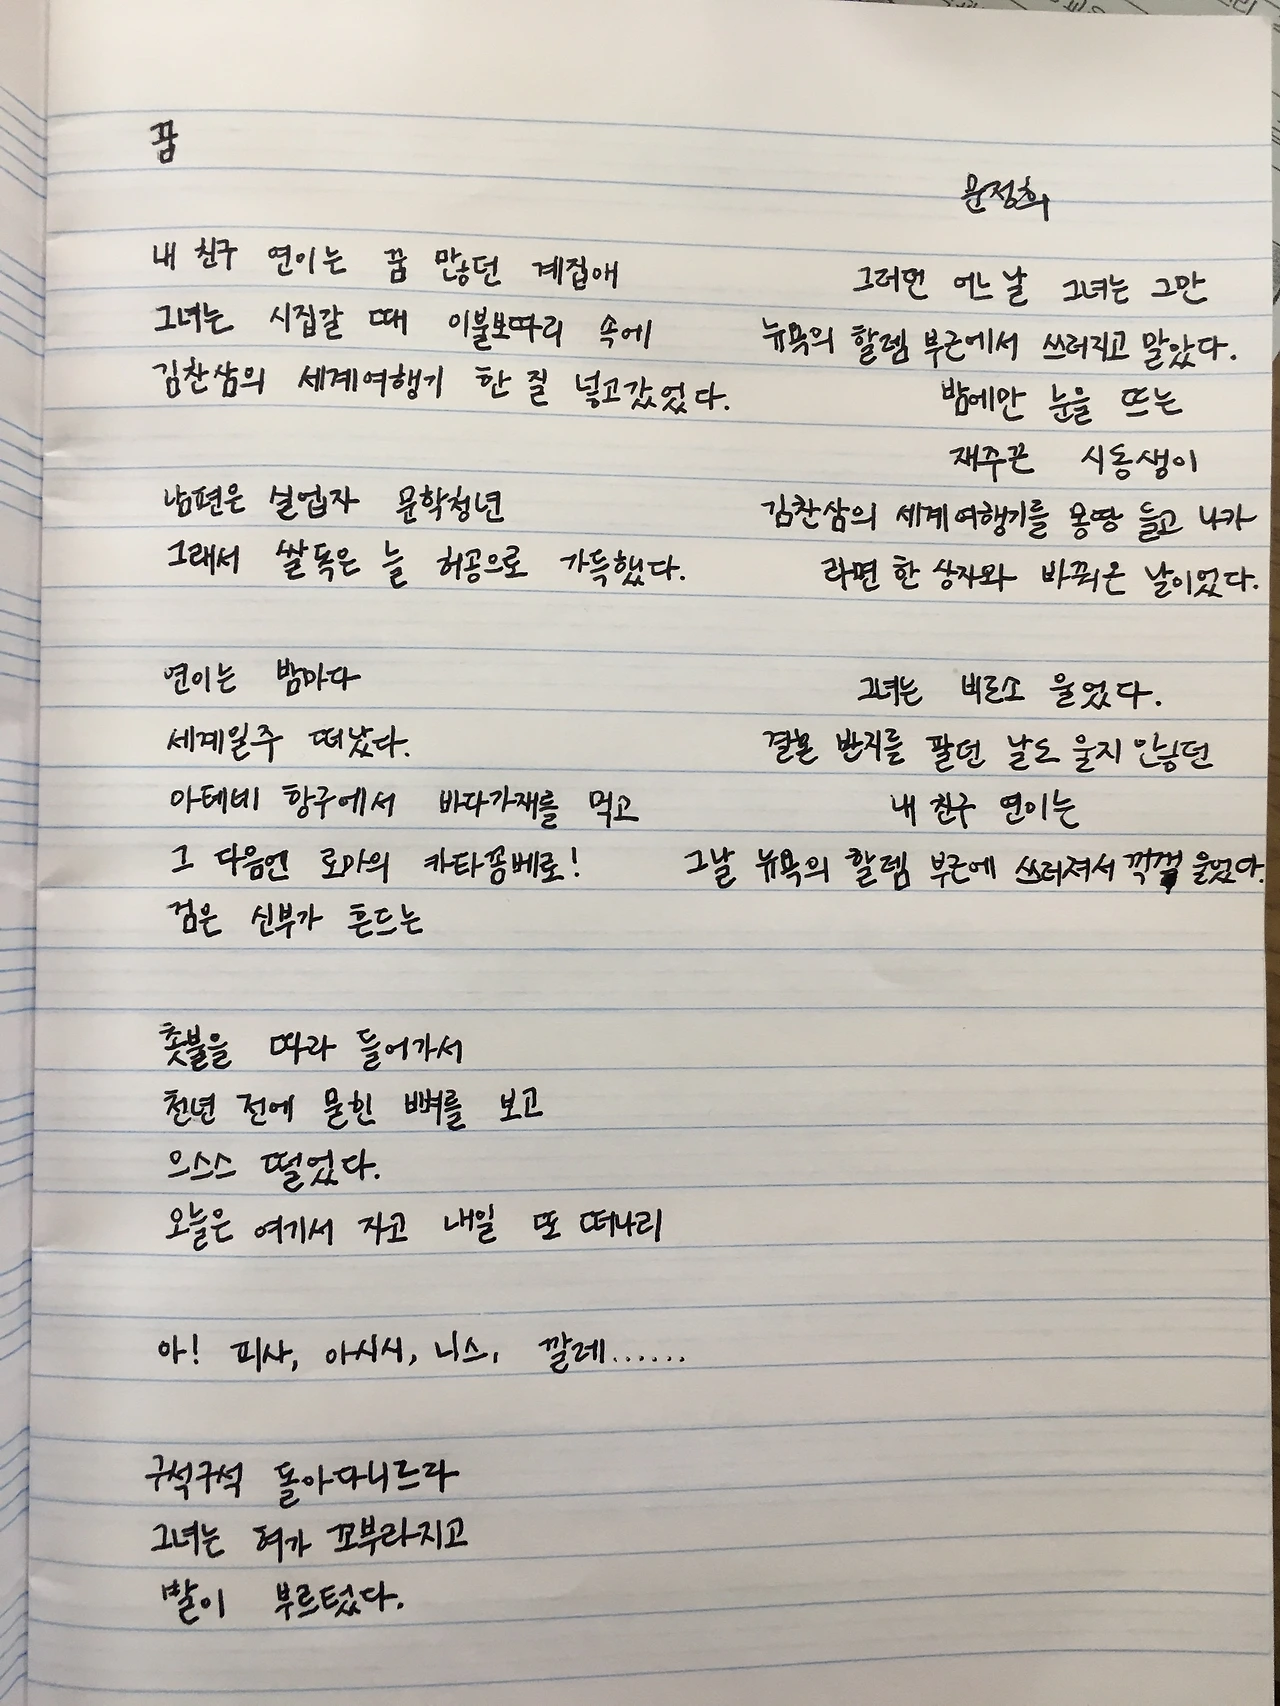 꿈
문정희
내 친구 연이는 꿈 많던 계집애
그녀는 시집갈 때 이불보따리 속에
김찬삼의 세계여행기 한 질 넣고갔었다.
남편은 실업자 문학청년
그래서 쌀독은 늘 허공으로 가득했다.
연이는 밤마다
세계일주 떠났다.
아테네 항구에서 바다가재를 먹고
그 다음엔 로마의 카타꽁베로!
검은 신부가 흔드는
촛불을 따라 들어가서
천년 전에 묻힌 뼈를 보고
으스스 떨었다.
오늘은 여기서 자고 내일 또 떠나리
아! 피사, 아시시, 니스, 깔레......
구석구석 돌아다니느라
그녀는 혀가 꼬부라지고
발이 부르텄다.
그러던 어느 날 그녀는 그만
뉴욕의 할렘 부근에서 쓰러지고 말았다.
밤에만 눈을 뜨는
재주꾼 시동생이
김찬삼의 세계여행기를 몽땅 들고 나가
라면 한 상자와 바꿔온 날이었다.
그녀는 비로소 울었다.
결혼 반지를 팔던 날도 울지 않던
내 친구 연이는
그날 뉴욕의 할렘 부근에 쓰러져서 꺽꺽 울었다.